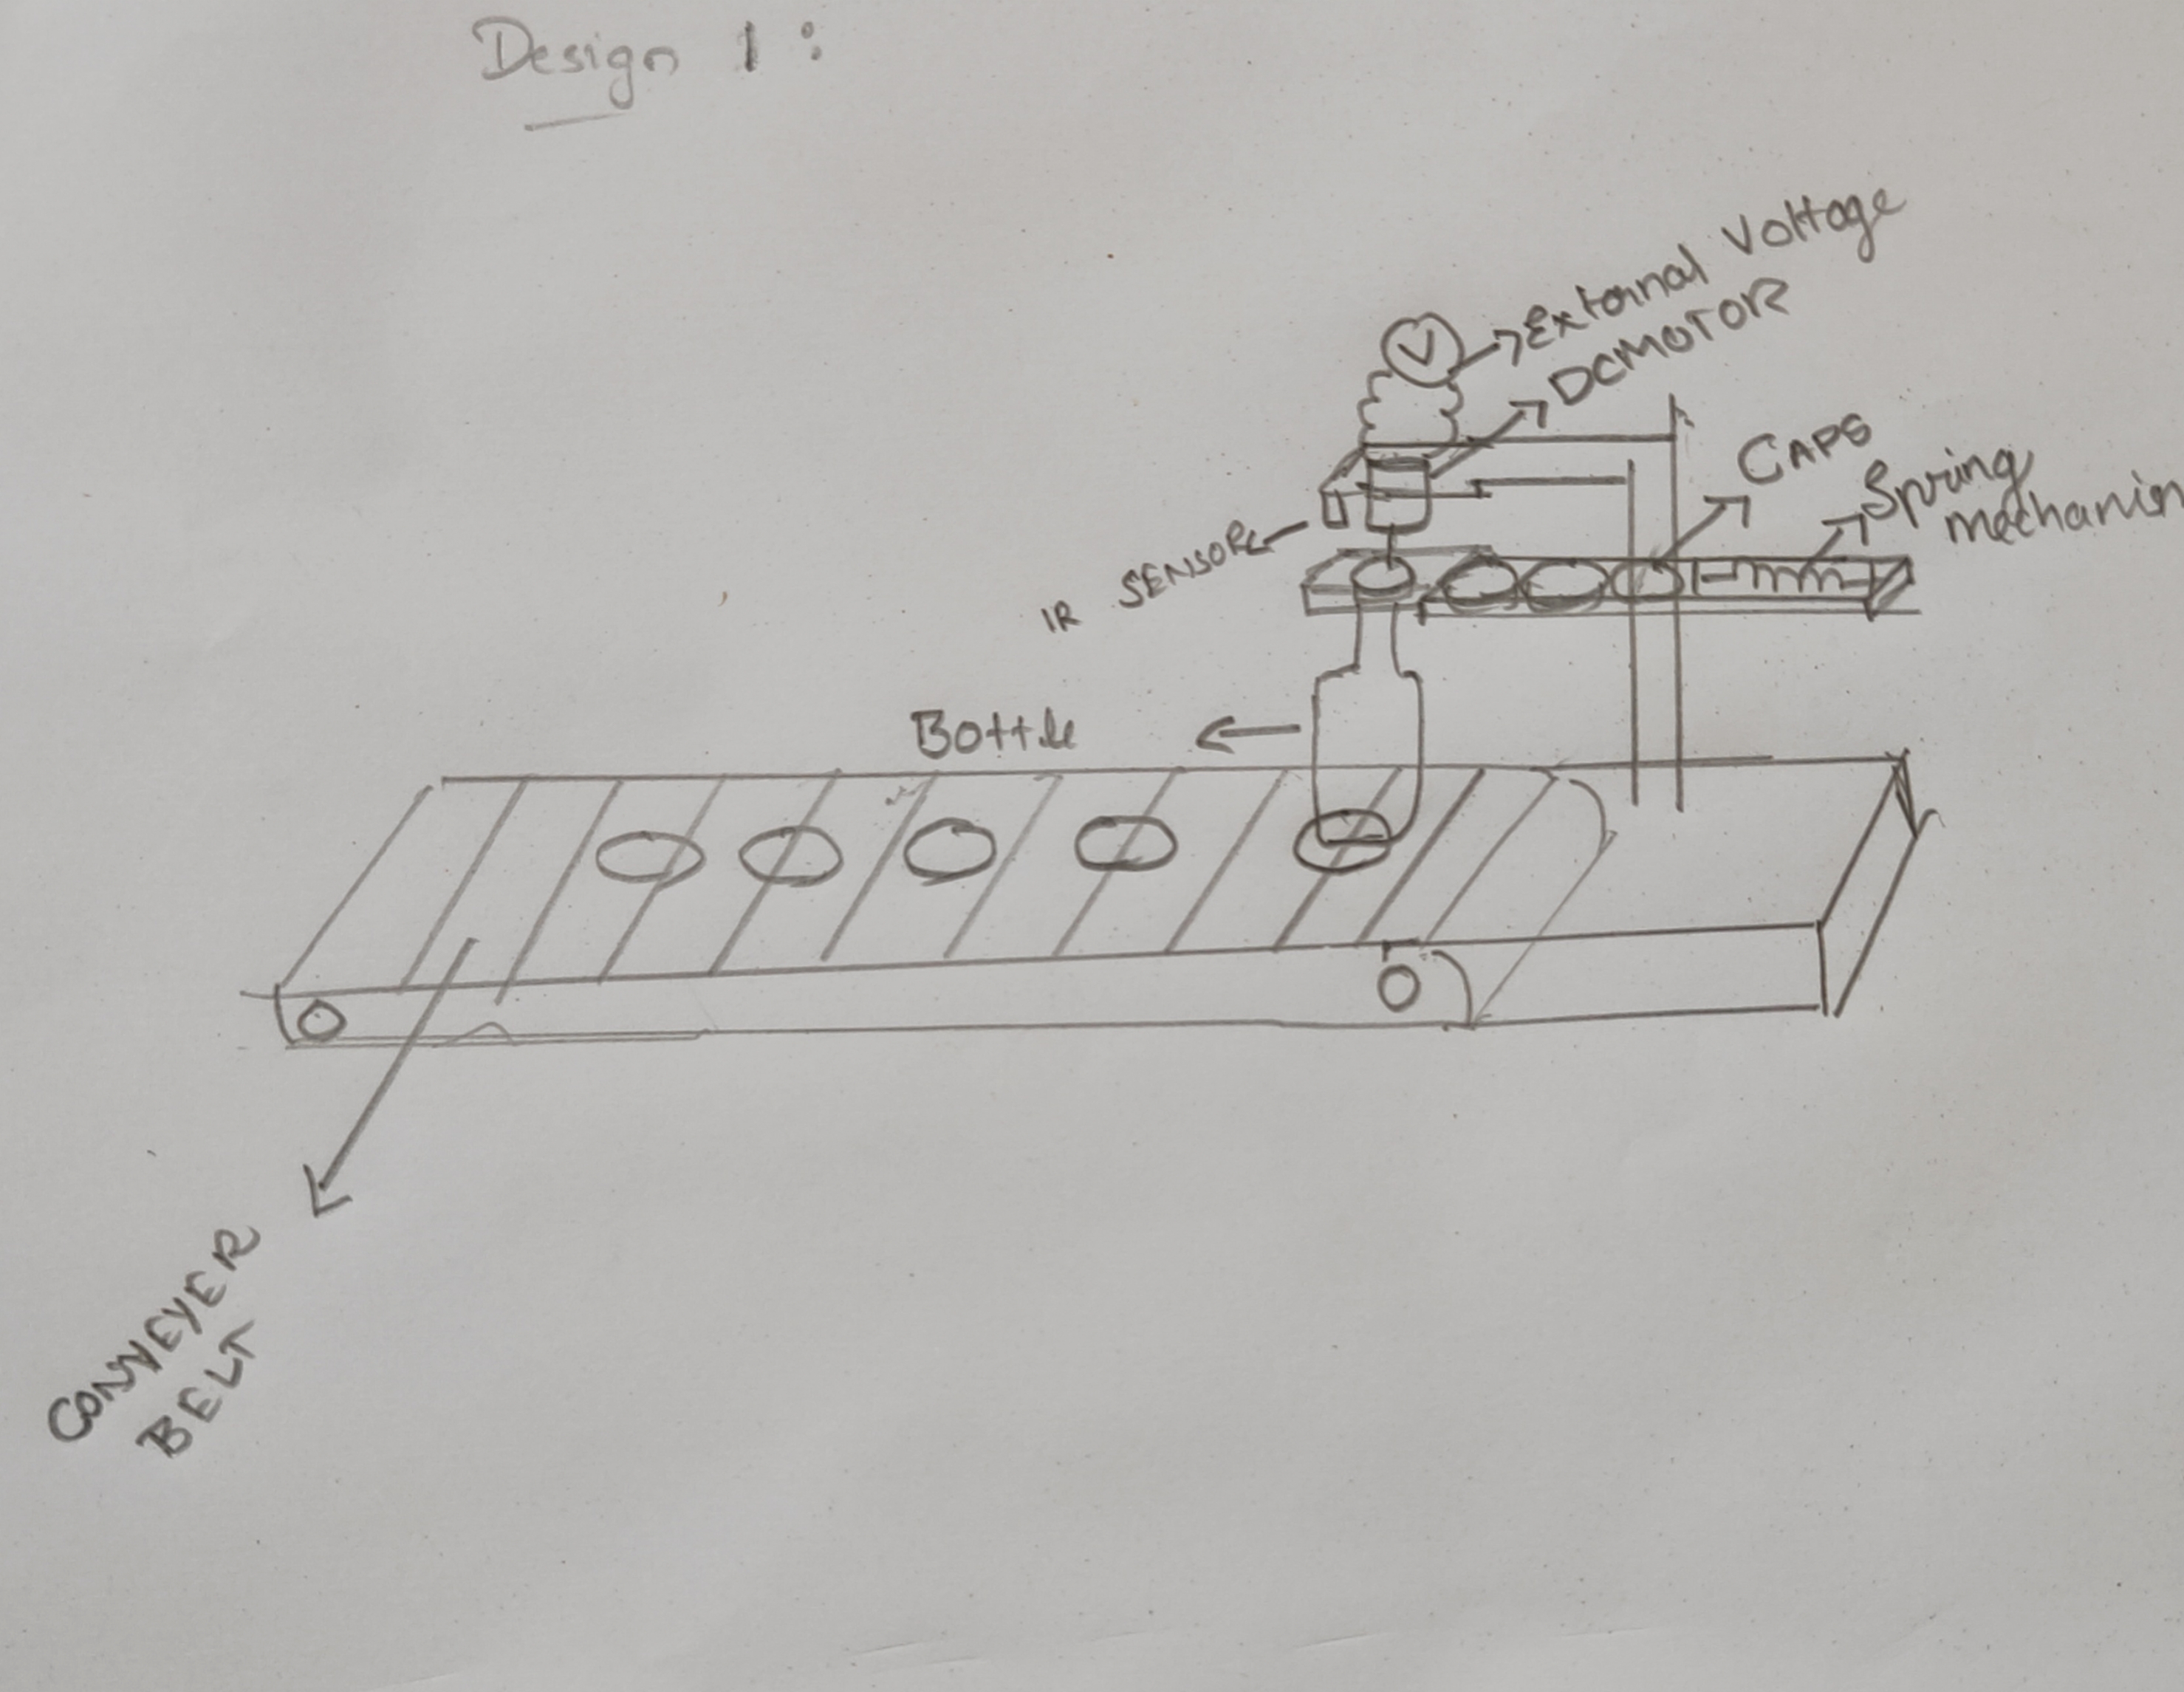 Design 1 :
External Voltage
DCMOTOR
V
CAPS
Spring
mechanism
IR SENSOR
Bottle
CONVEYER
BELT